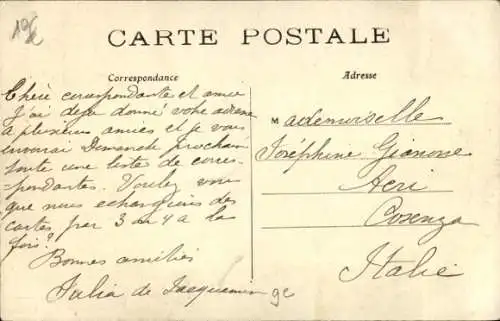 CARTE POSTALE
Correspondance
Chère correspondante et amie
J'ai déjà donné votre adresse
a plusieurs amies et je vous
enverrai Dimanche prochain
toute une liste de corres-
=pondantes. Voulez vous
que nous echangions des
cartes par 3 ou 4 a la
fois?
Bonnes amitiés
Julia de Jacquemin
Adresse
Mademoiselle
Joséphine Gianone
Acri
Cosenza
Italie